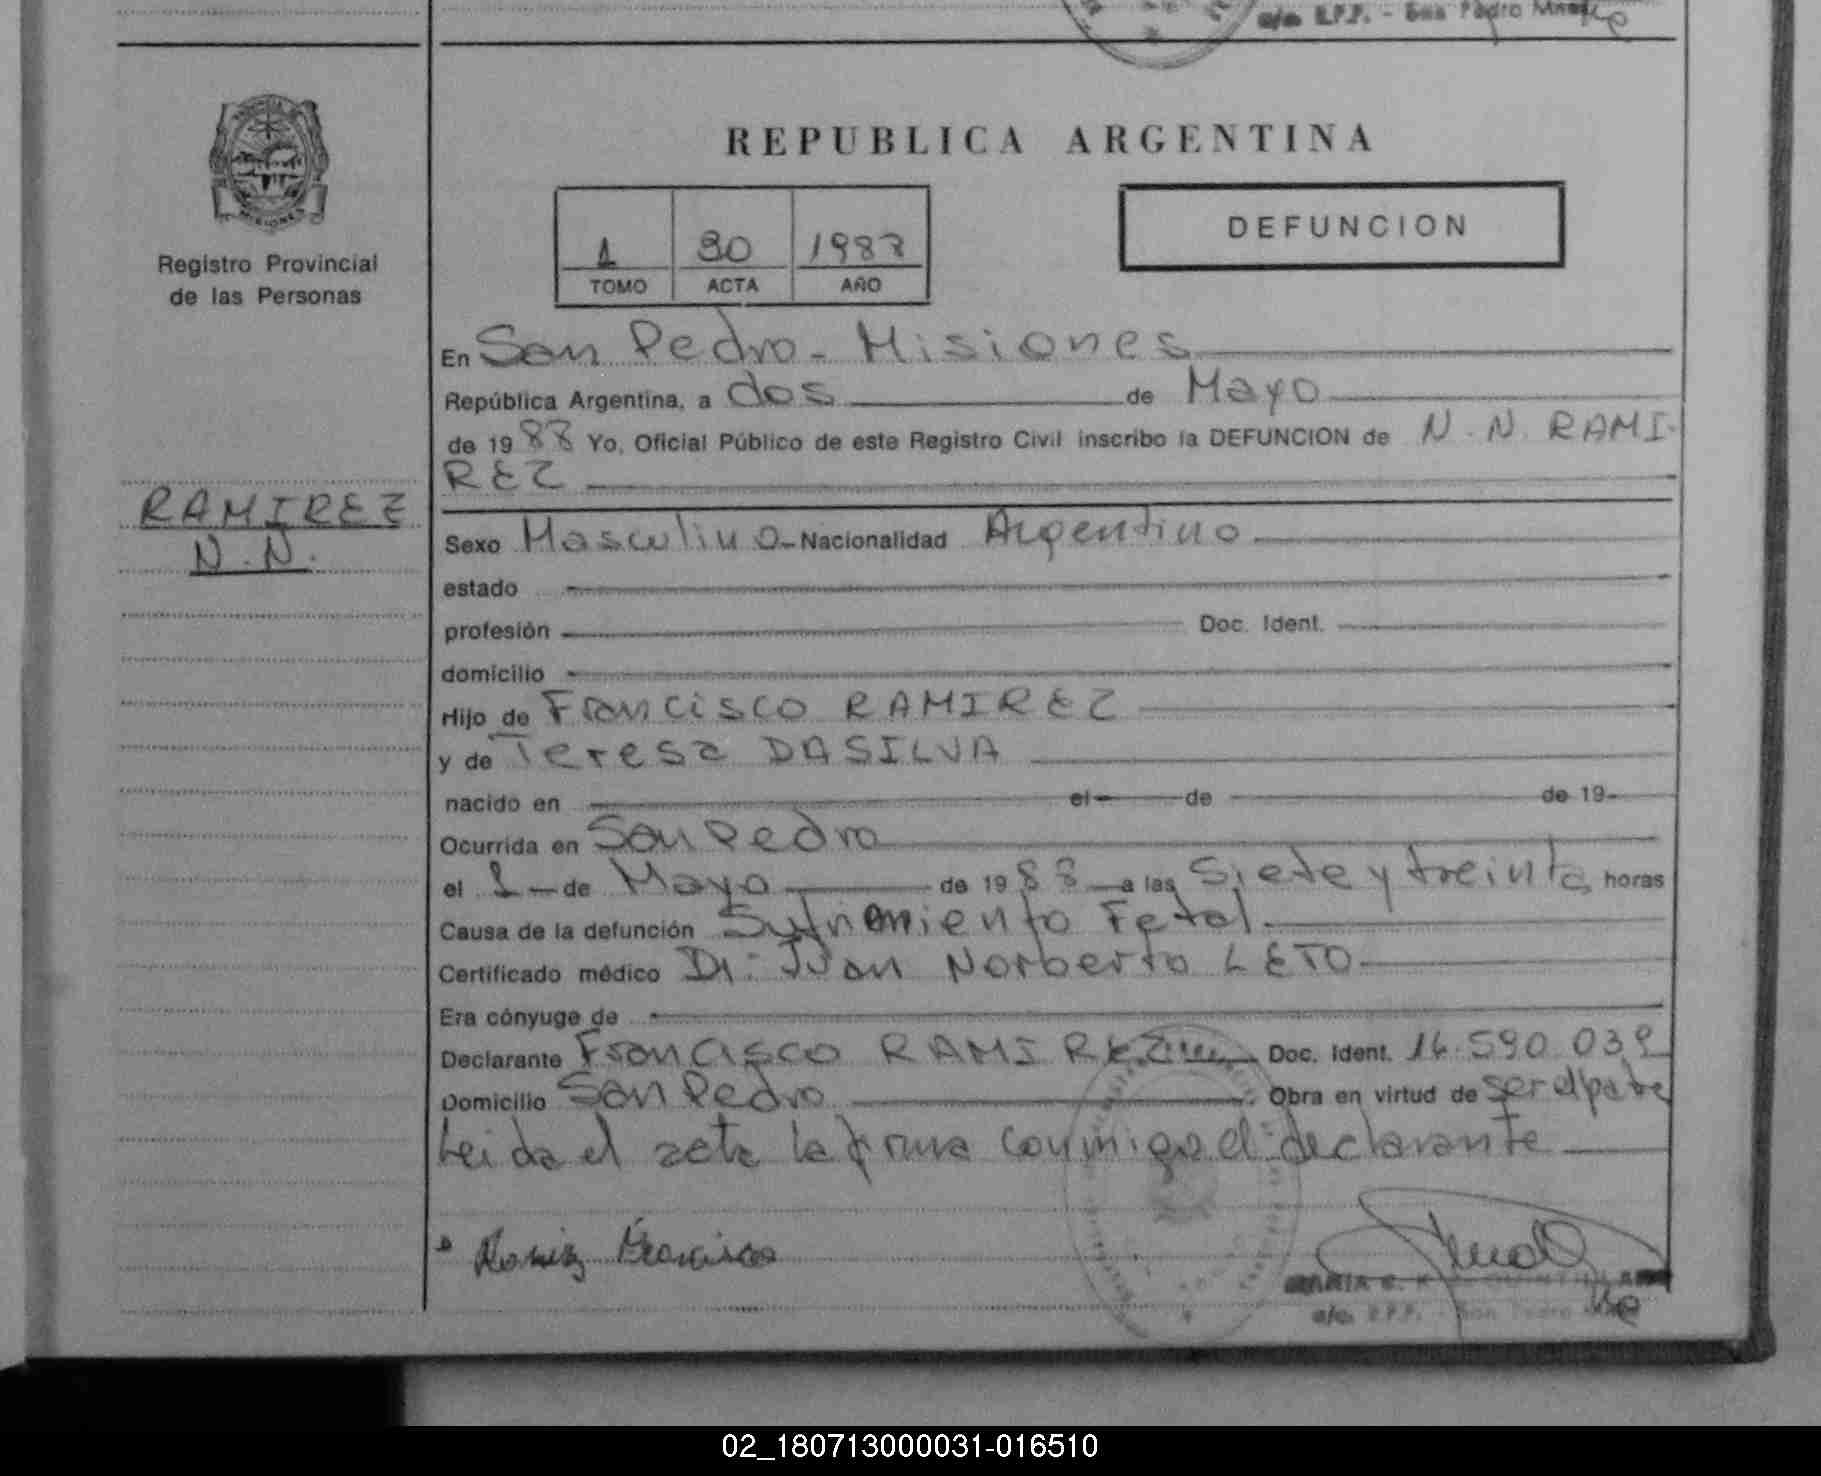 a/c. R.P.P. - San Pedro Mnes
PROVINCIA
MISIONES
Registro Provincial
de las Personas
REPUBLICA ARGENTINA
1 30 1988
TOMO ACTA AÑO
DEFUNCION
En San Pedro - Misiones
República Argentina, a dos de Mayo
de 1988 Yo, Oficial Público de este Registro Civil inscribo la DEFUNCION de N. N. RAMI-
REZ
RAMIREZ
N. N.
Sexo Masculino - Nacionalidad Argentino
estado
profesión Doc. Ident.
domicilio
Hijo de Francisco RAMIREZ
y de Teresa DASILVA
nacido en el de de 19
Ocurrida en San Pedro
el 1 de Mayo de 1988 a las Siete y treinta horas
Causa de la defunción Sufrimiento Fetal
Certificado médico Dr: Juan Norberto LETO
Era cónyuge de
Declarante Francisco RAMIREZ Doc. Ident. 16.590.039
Domicilio San Pedro Obra en virtud de ser el padre
Leida el acta la firma conmigo el declarante
Ramirez Francisco
MARIA
a/c. R.P.P. - San Pedro
02_180713000031-016510